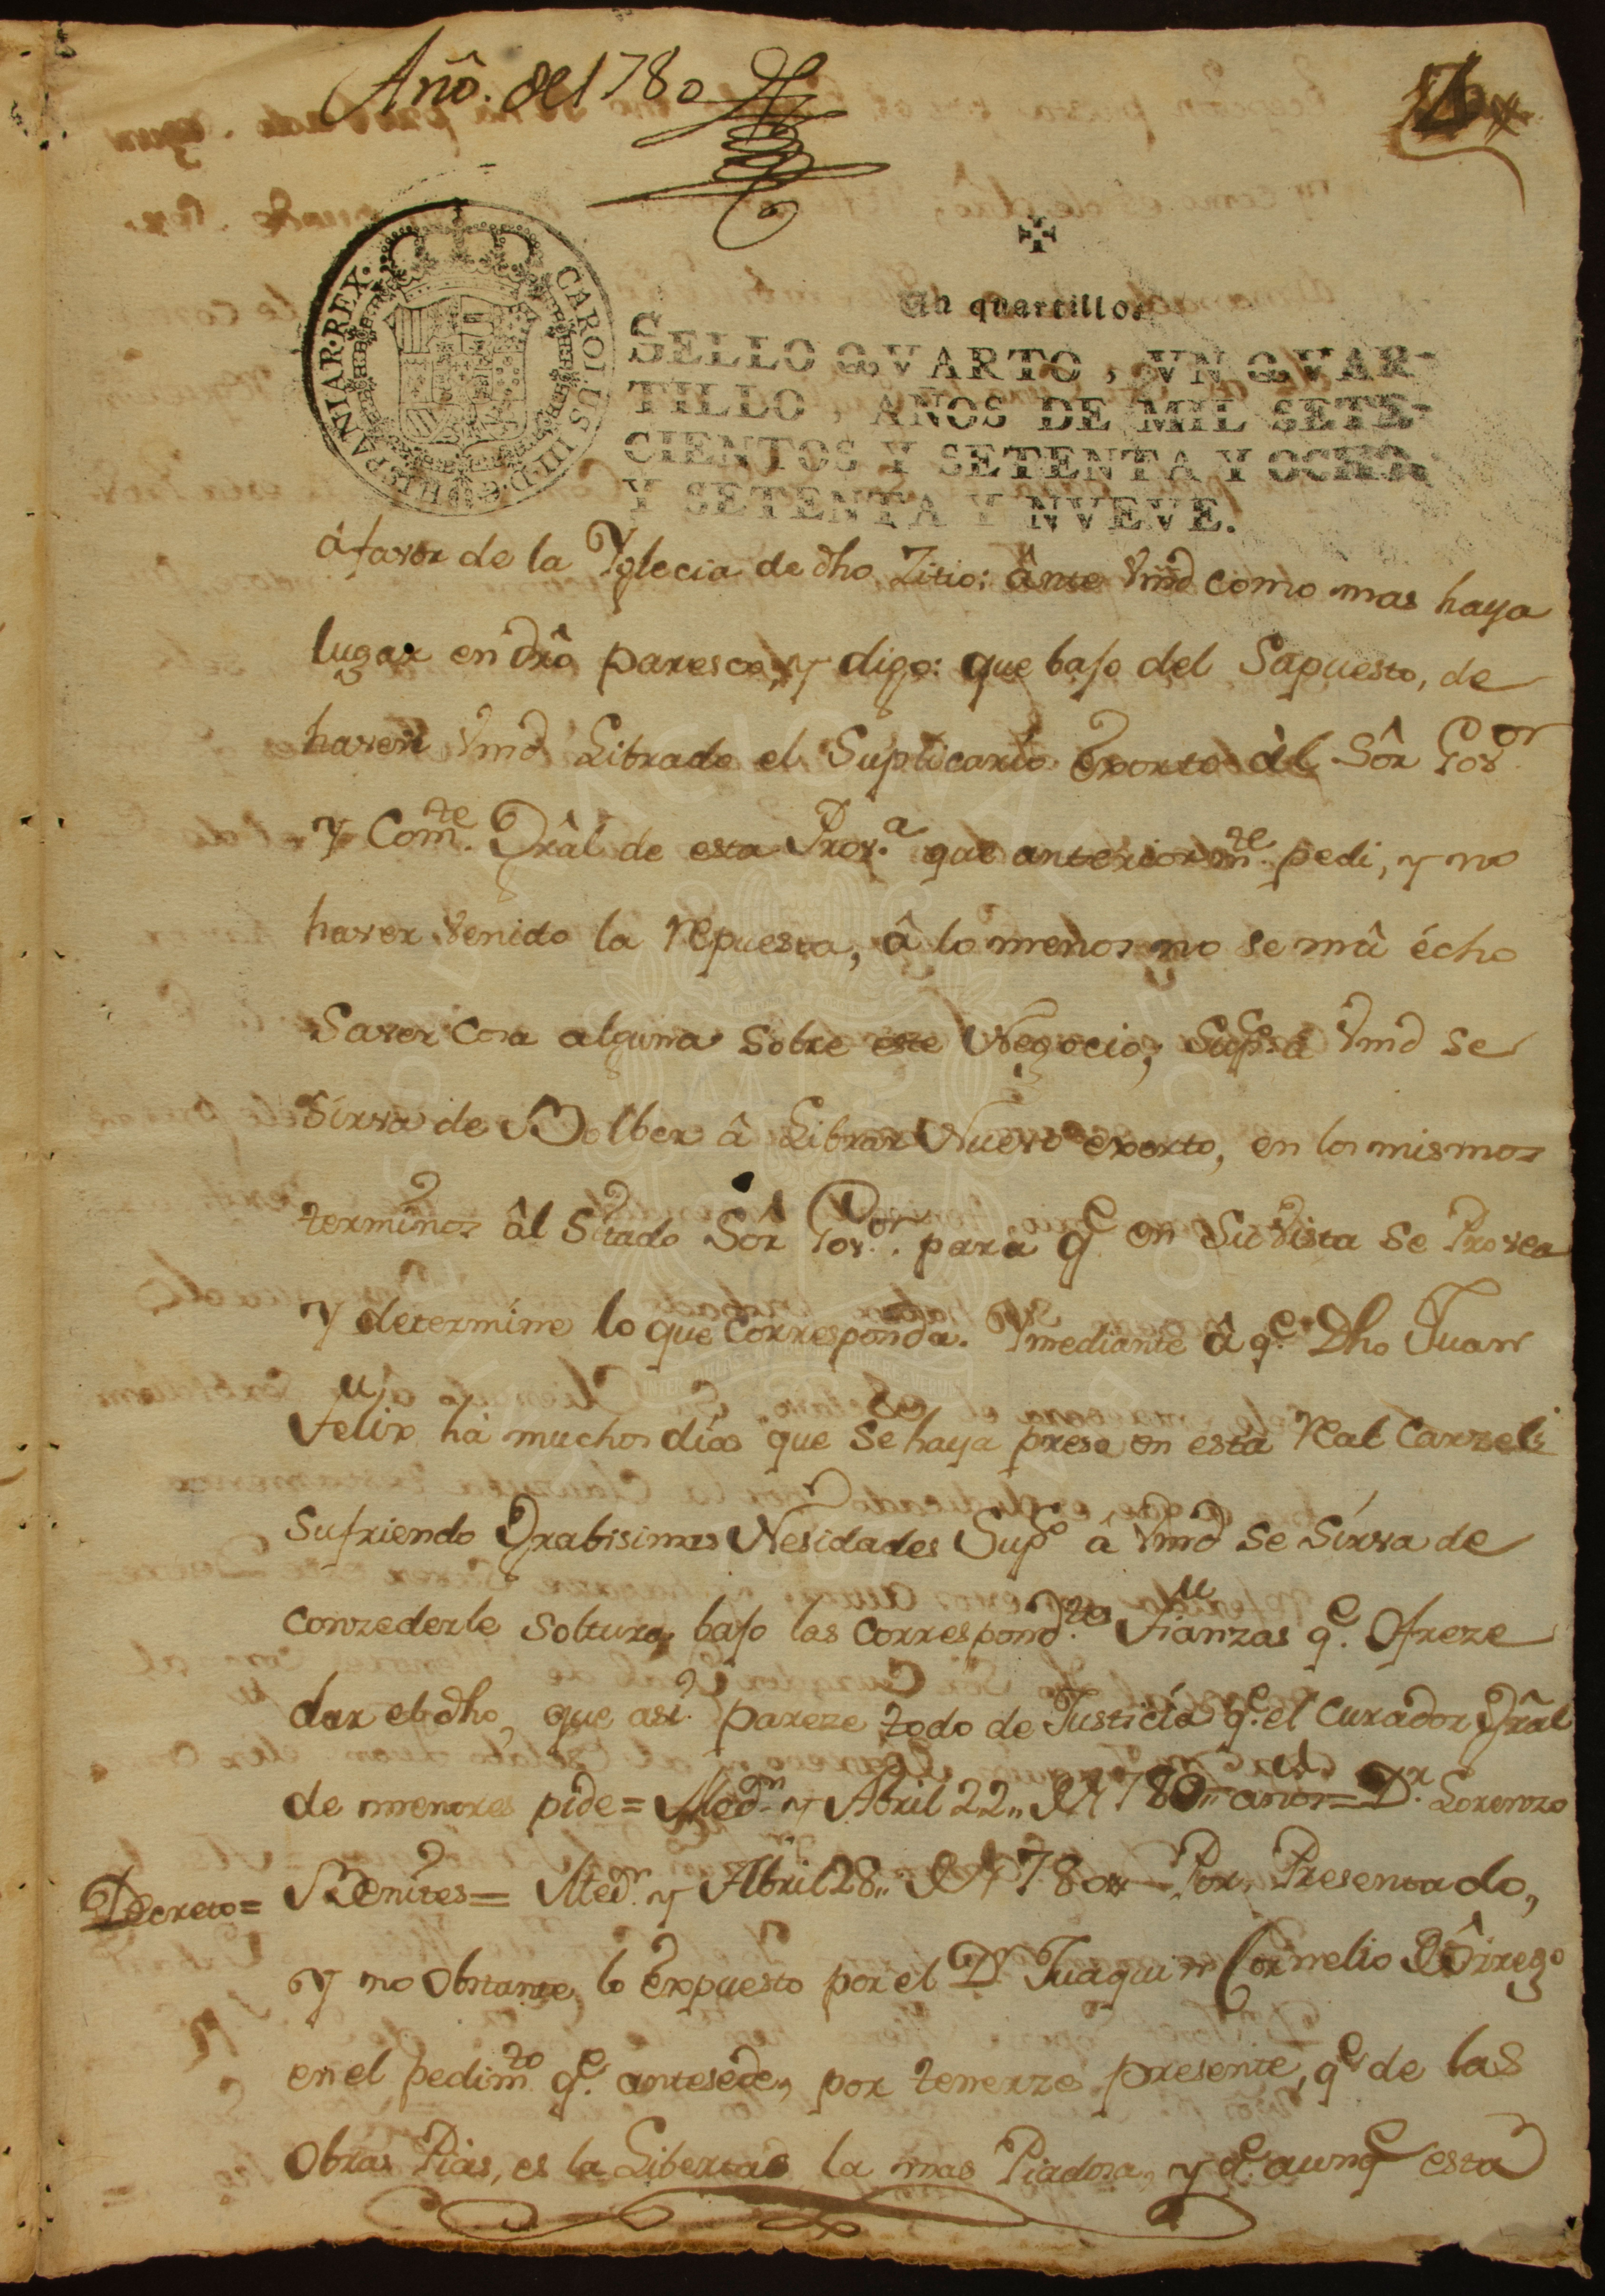 Añô. del 1780
Un quartillo.
CAROLUS III. D. G. HISPANIAR. REX.
SELLO QVARTO, VN QVAR-
TILLO, AÑOS DE MIL SETE-
CIENTOS Y SETENTA Y OCHO,
Y SETENTA Y NVEVE.
â favor de la Yglecia de dho Zitio: ânte Vmd como mas haya
lugar en drô paresco, y digo: que bajo del Supuesto, de
haver Vmd Librado el Suplicario Exorto âl Sôr Govor
y Comte. Grâl de esta Prova. que anteriormte. pedi, y no
haver venido la repuesta, â lo menos no se mâ écho
Saver cosa alguna sobre este Negocio; Supca Vmd se
Sirva de Bolber â Librar Nuevo exorto, en los mismos
terminos âl Sitado Sôr Govor. para qe en Su Vista se Provea
y determine lo que corresponda. Ymediante â qe. Dho Juan
Felix há muchos dias que se haya preso en esta real Carzel
Sufriendo Grabisimas Nesidades Supco â Vmd se Sirva de
Conzederle Soltura, bajo las Correspondtes Fianzas qe. Ofreze
dar el dho, que asi pareze todo de Justicia qe. el Curador Grâl
de menores pide = Medn y Abril 22,, de 1780,, años = Dr. Lorenzo
Decreto = Benites = Medn. y Abril 28,, de 1780 Por Presentado,
y no Obstante, lo Expuesto por el Dr Juaquin Cornelio
en el pedimto qe. antesede, por tenerze presente, qe de las
Obras Pias, es la Libertad la mas Piadosa, y qe. aunqe esta